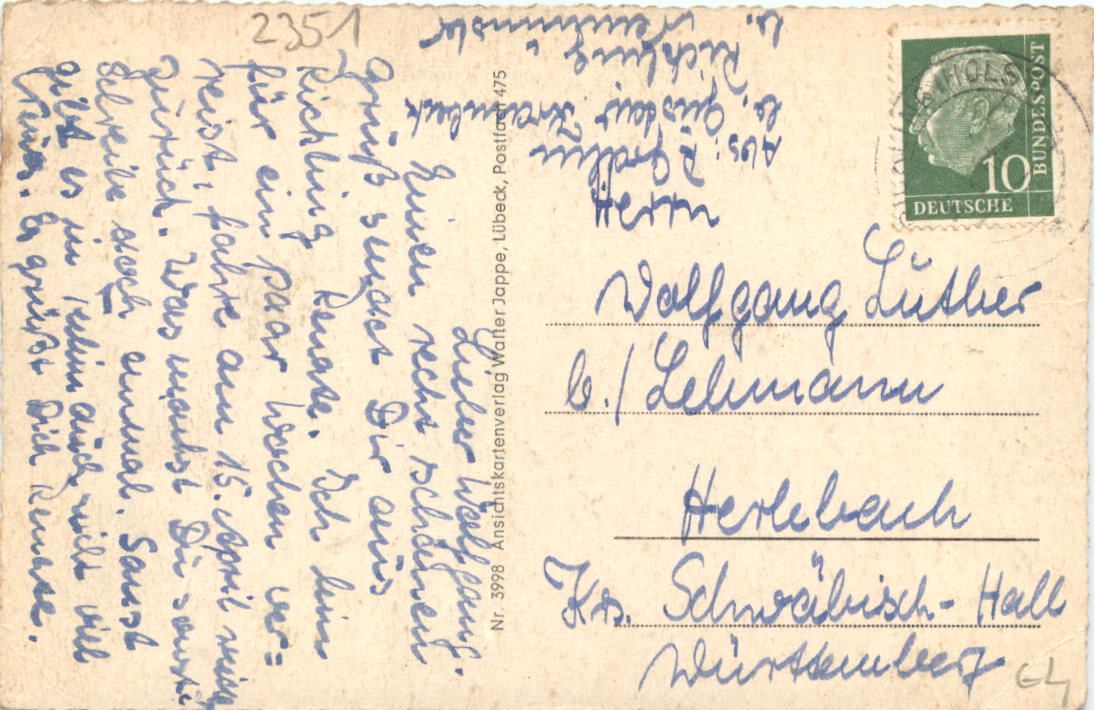 2351
Lieber Wolfgang.
Einen recht schönen
Gruß sendet Dir aus
Rickling Renate. Ich bin
für ein paar Wochen ver=
reist, fahre am 15. April wieder
zurück. Was machst Du sonst?
Schreibe doch einmal. Sonst
gibt es im ja auch nicht viel
Neues. Es grüßt Dich Renate.
Nr. 3998 Ansichtskartenverlag Walter Jappe, Lübeck, Postfach 475
Abs: R.
b. Gustav
Rickling
b. Neumünster
HOLS
10
DEUTSCHE
BUNDESPOST
Herrn
Wolfgang Luther
b./ Lehmann
Herlebach
Krs. Schwäbisch-Hall
Württemberg